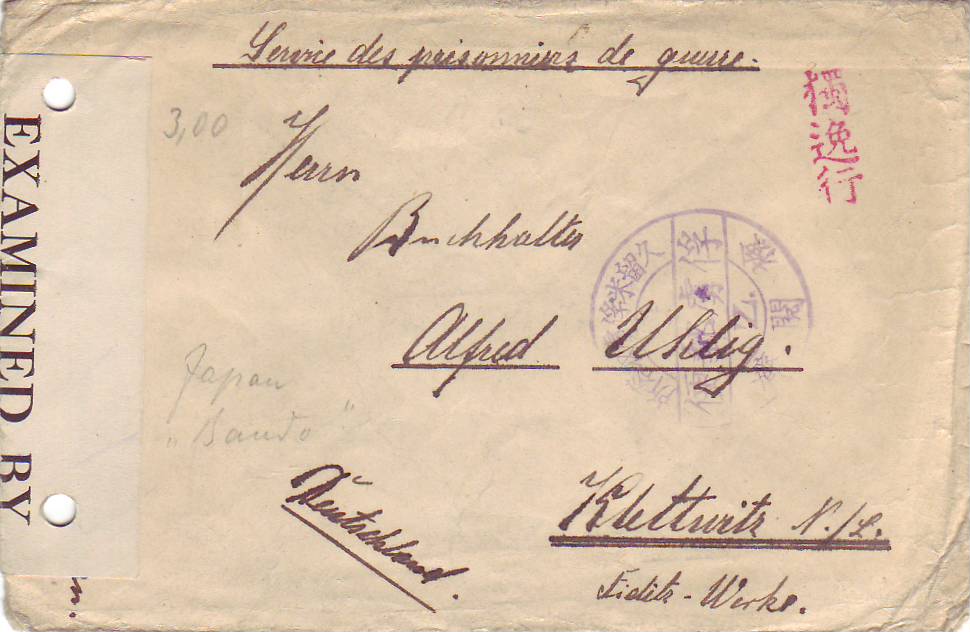 Service des prisonniers de guerre.
獨逸行
3,00
Herrn
Buchhalter
Alfred Uhlig.
俘虜郵便
久留米
閱
Japan
"Bando"
Deutschland.
Klettwitz N./L.
Werke.
EXAMINED BY